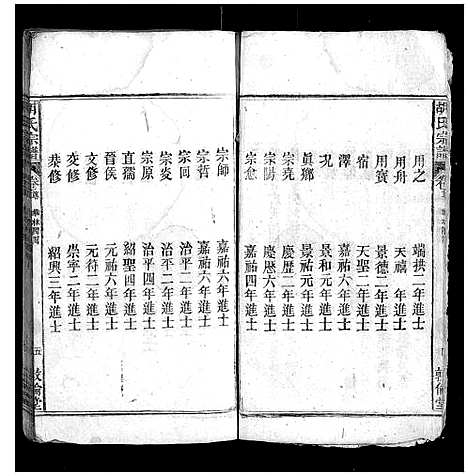 胡氏宗譜
用之 端拱二年進士
用舟 天禧 年進士
用賓 景德二年進士
況 天聖二年進士
澤 嘉祐六年進士
鄉 景和元年進士
真 景祐元年進士
宗陽 慶歷二年進士
宗愈 慶歷六年進士
宗師 嘉祐六年進士
宗哲 嘉祐六年進士
宗回 治平二年進士
宗炎 治平二年進士
宗原 治平四年進士
直孺 紹聖四年進士
晉侯 元祐 年進士
文修 元符二年進士
交修 崇寧二年進士
恭修 紹興三年進士
胡氏宗譜
五 敦倫堂